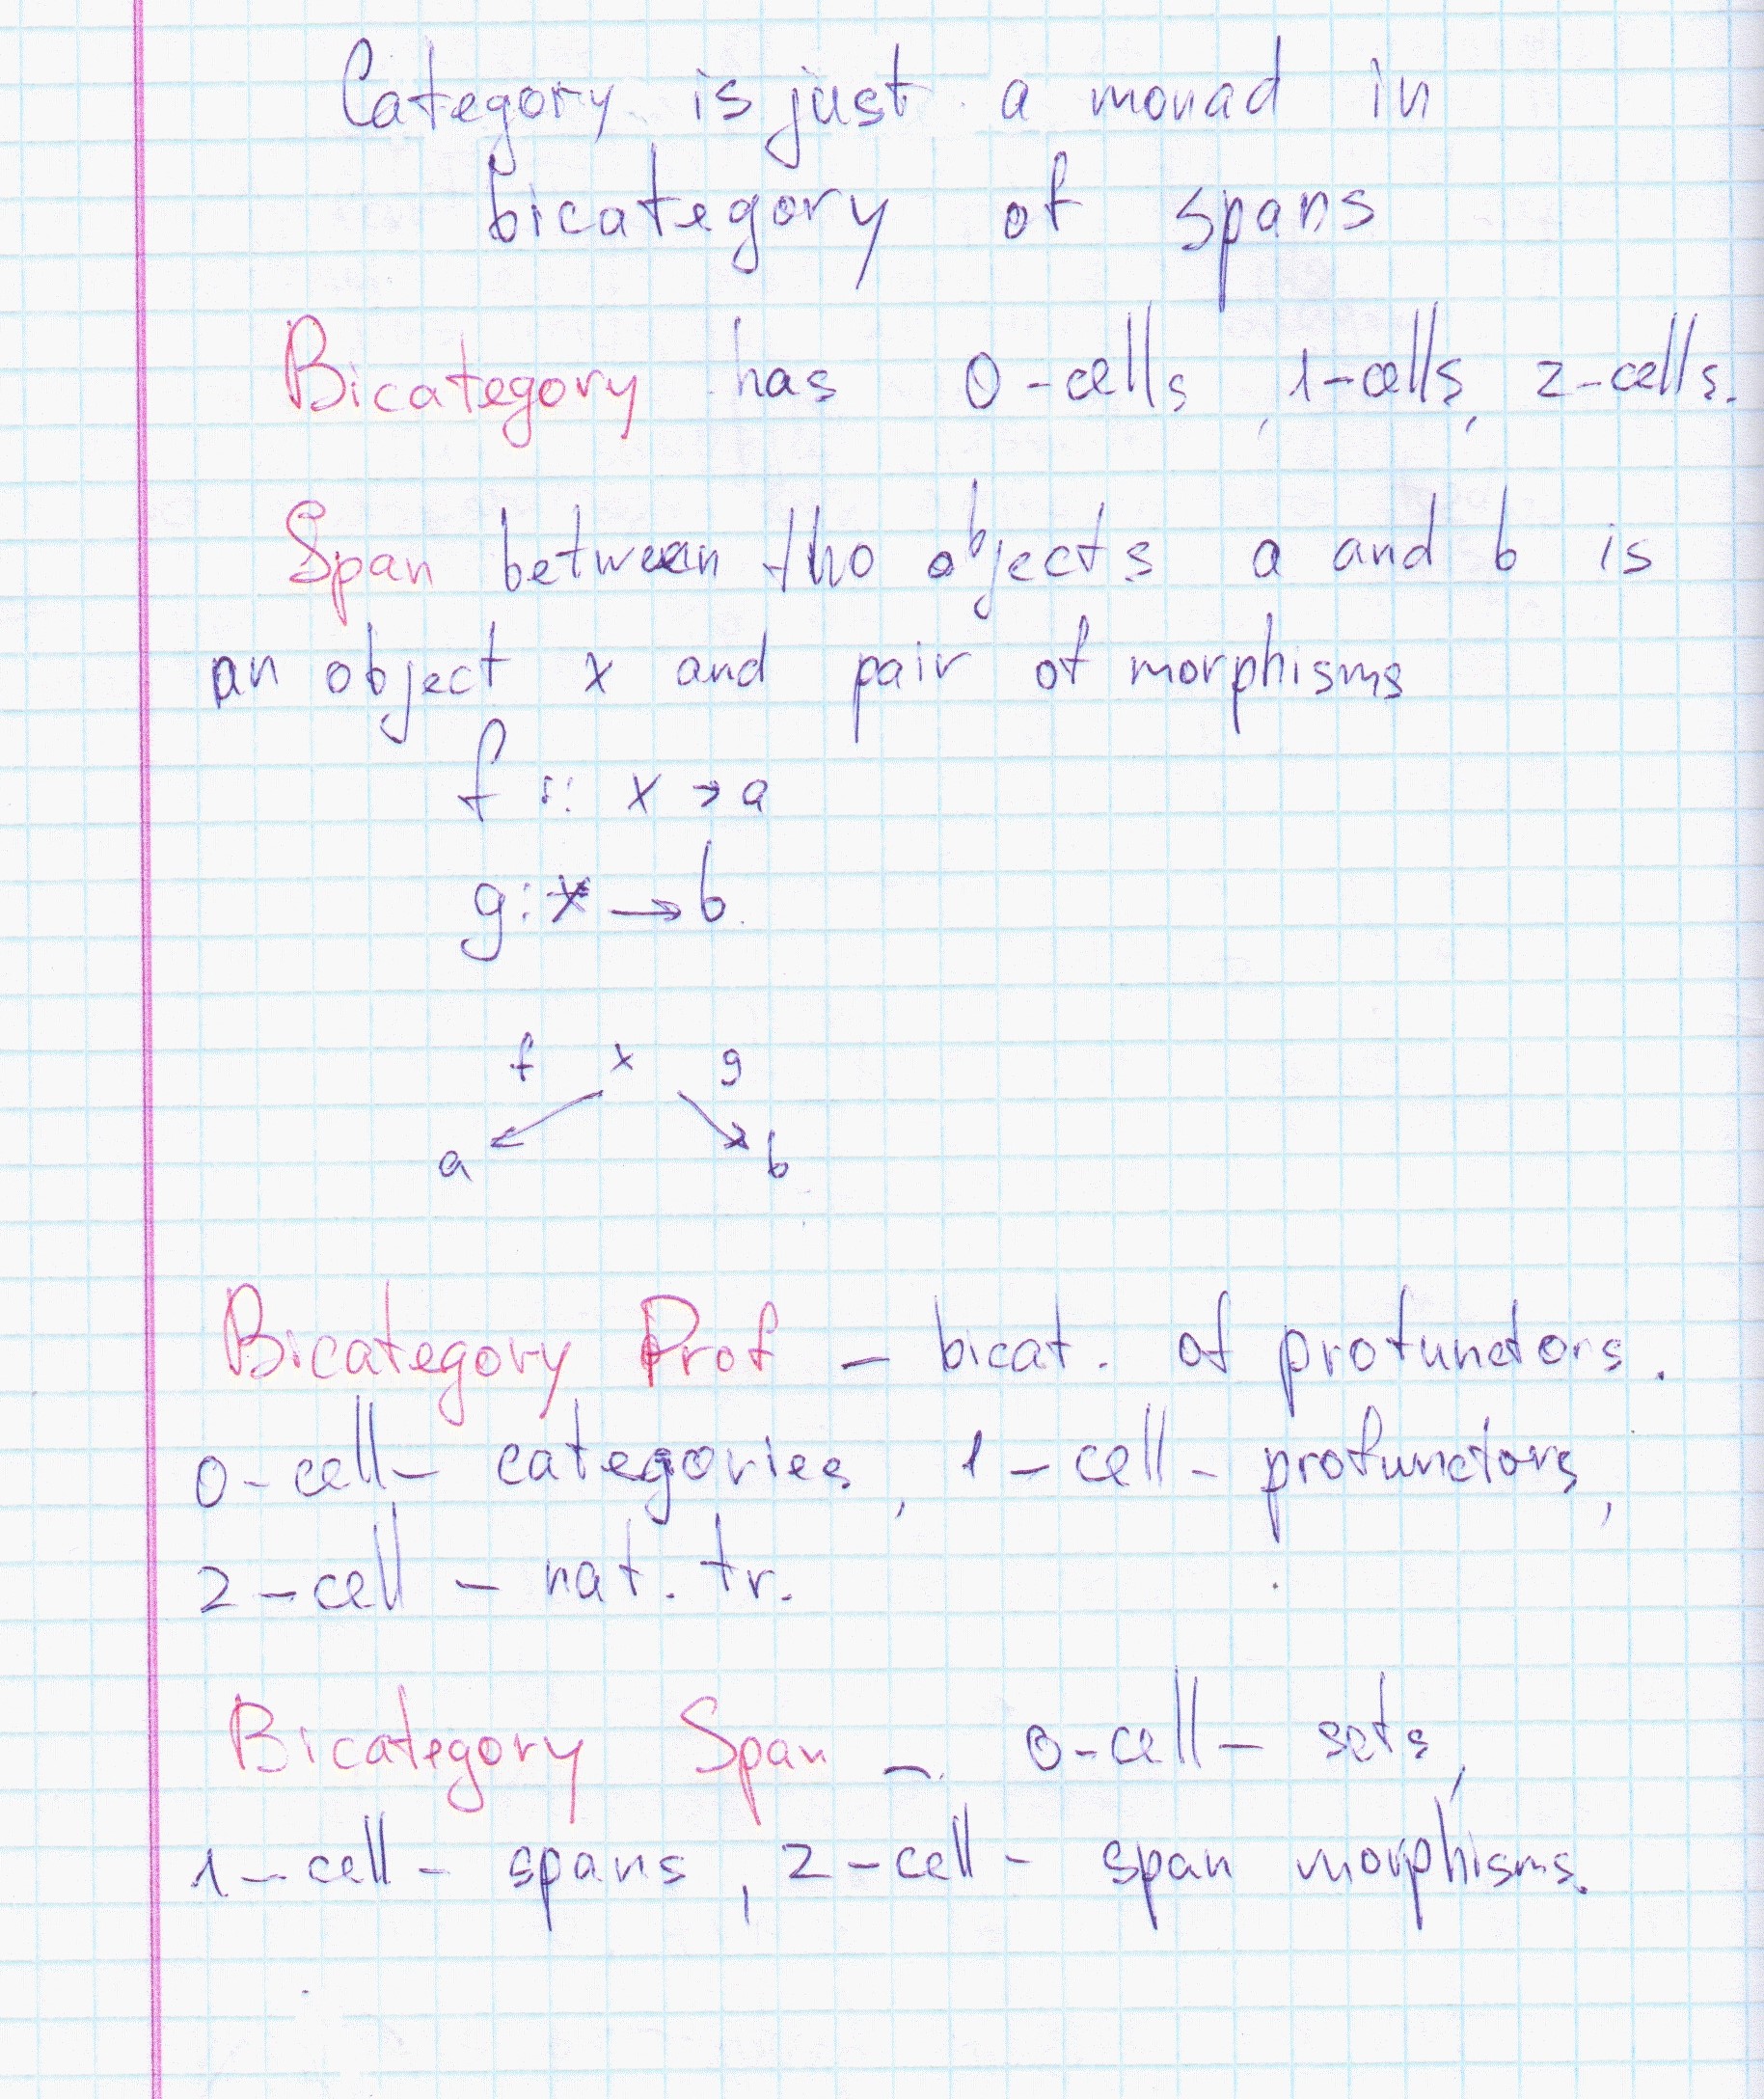 Category is just a monad in
bicategory of spans
Bicategory has 0-cells, 1-cells, 2-cells.
Span between tho objects a and b is
an object x and pair of morphisms
f :: x → a
g : x → b.
f x g
a b
Bicategory Prof – bicat. of profunctors.
0-cell – categories, 1-cell – profunctors,
2-cell – nat. tr.
Bicategory Span – 0-cell – sets,
1-cell – spans, 2-cell – span morphisms.